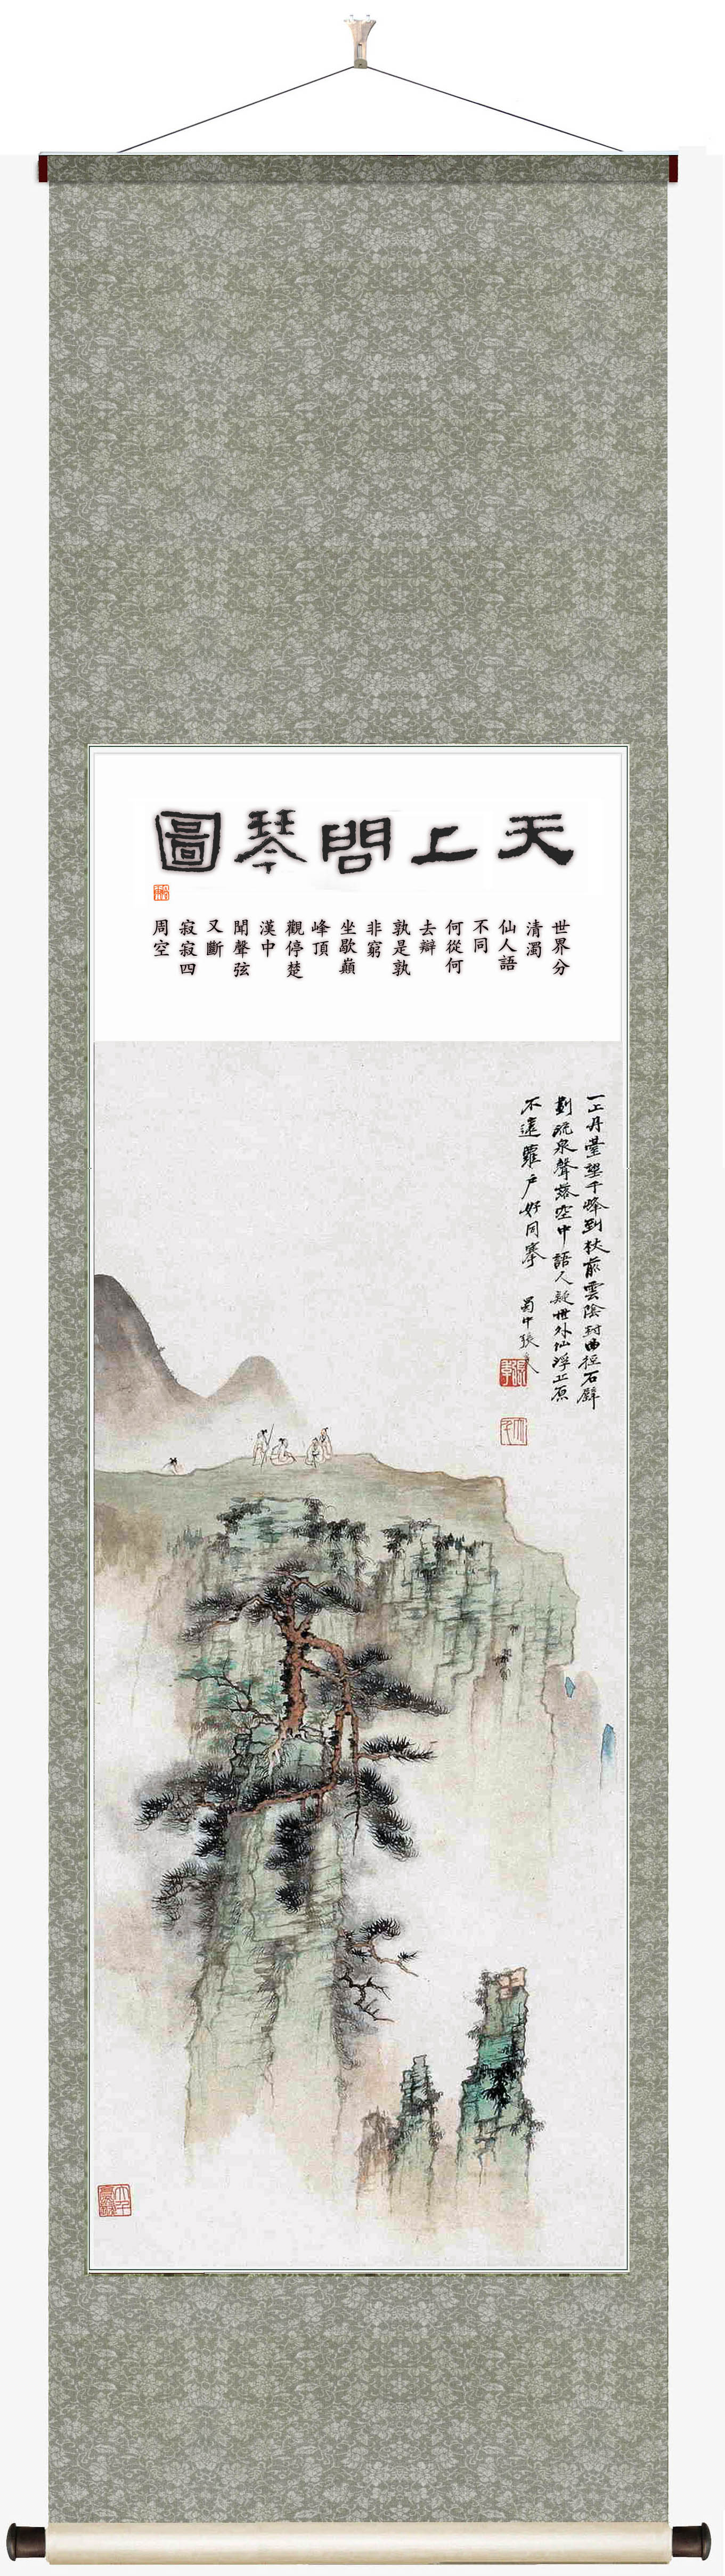 天上問琴圖
世界分
清濁
仙人語
不同
何從何
去辯
孰是孰
非窮
坐歇巔
峰頂
觀停楚
漢中
聞聲弦
又斷
寂寂四
周空
一上丹臺望千峰到杖前雲陰封曲徑石壁
劃疏泉聲落空中語人疑世外仙浮丘原
不遠蘿戶好同搴
蜀中張